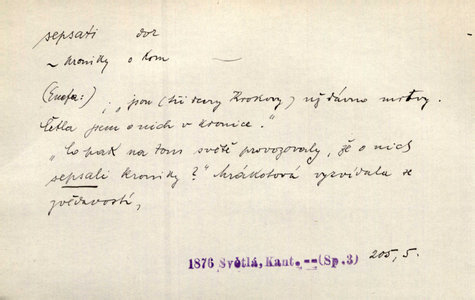 sepsati dok
~ kroniky o kom
(Eneta:) ; „jsou (tři dcery Krokovy) už dávno mrtvy.
Četla jsem o nich v kronice."
„Co pak na tom světě provozovaly, že o nich
sepsali kroniky?" Mrákotová vyzvídala se
zvědavostí,
1876 Světlá, Kant. -- (Sp.3) 205, 5.